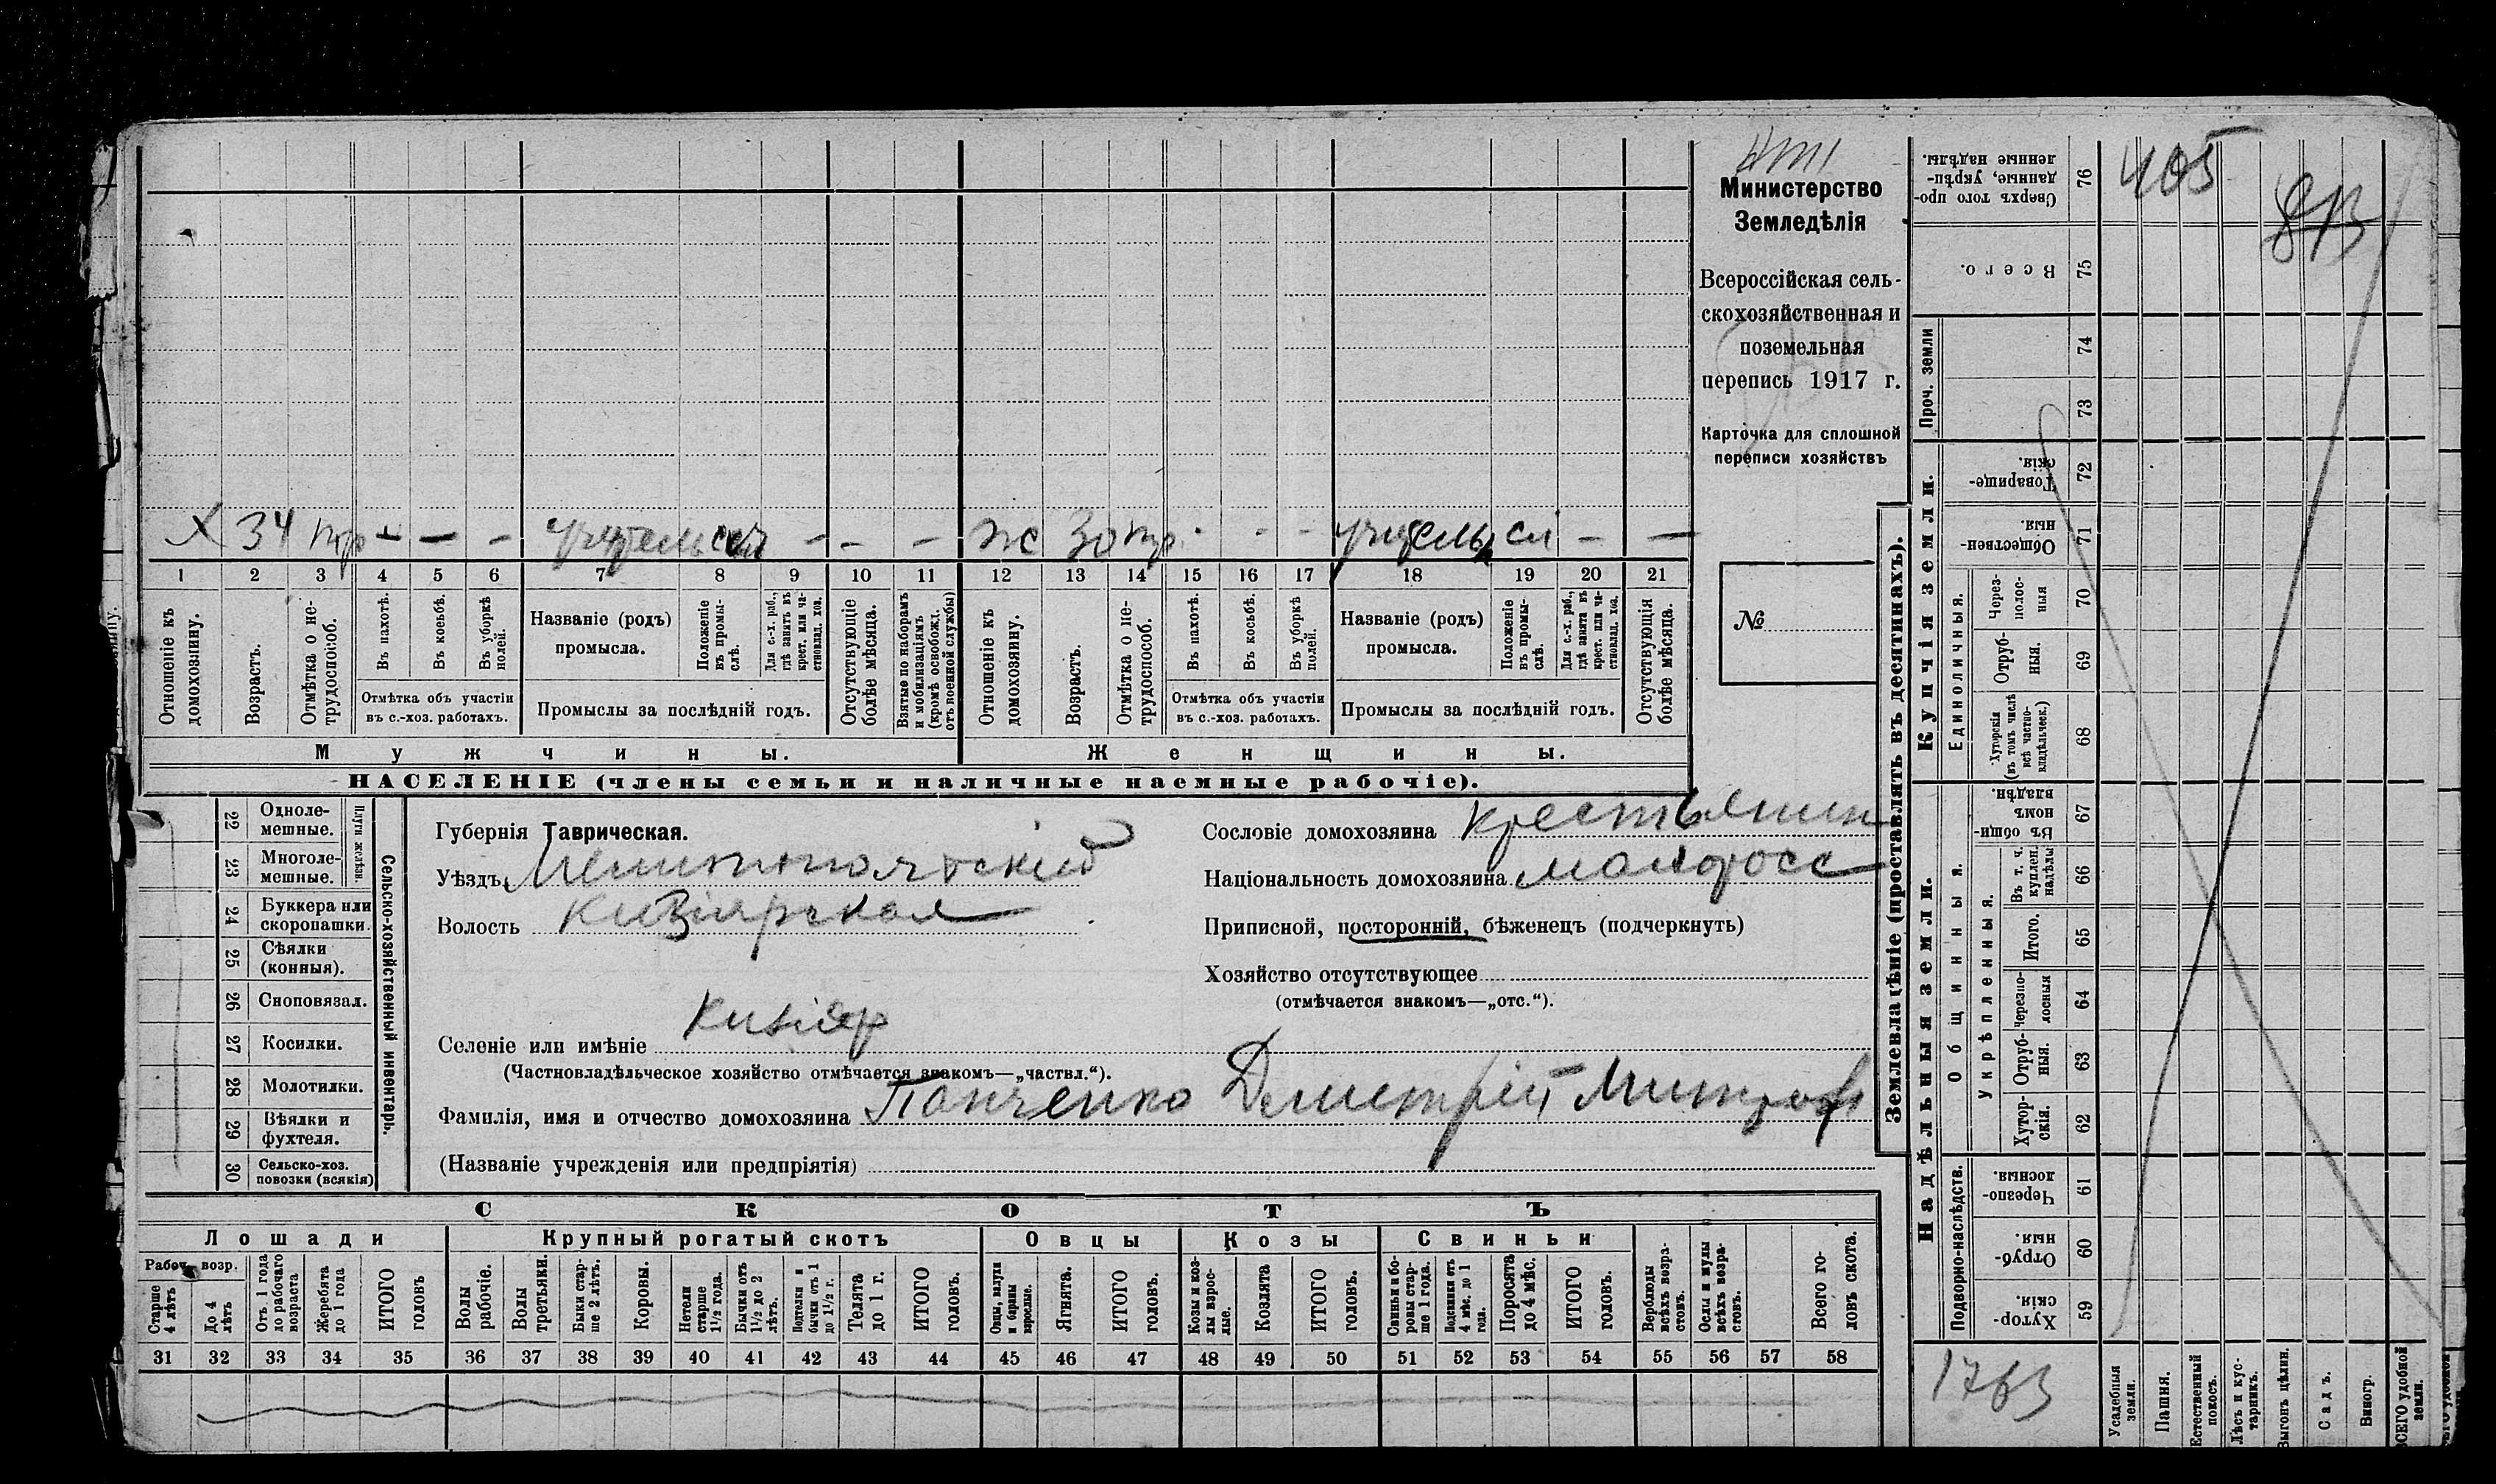 Министерство
Земледѣлія
Всероссійская сель-
скохозяйственная и
поземельная
перепись 1917 г.
Карточка для сплошной
переписи хозяйствъ
№
X 34 пр — — — учитель сел — — — ж 30 пр - - - учительн сел — —
1 2 3 4 5 6 7 8 9 10 11 12 13 14 15 16 17 18 19 20 21
Отношеніе къ домохозяину.
Возрастъ.
Отмѣтка о не-трудоспособ.
Въ пахотѣ.
Въ косьбѣ.
Въ уборкѣ полей.
Отмѣтка объ участіи
въ с.-хоз. работахъ.
Названіе (родъ)
промысла.
Положеніе въ промы-слѣ.
Для с.-х. раб., гдѣ занятъ въ крест. или ча-стновлад. хоз.
Промыслы за послѣдній годъ.
Отсутствующіе болѣе мѣсяца.
Взятые по наборамъ и мобилизаціямъ (кромѣ освобожд. отъ военной службы)
Отношеніе къ домохозяину.
Возрастъ.
Отмѣтка о не-трудоспособ.
Въ пахотѣ.
Въ косьбѣ.
Въ уборкѣ полей.
Отмѣтка объ участіи
въ с.-хоз. работахъ.
Названіе (родъ)
промысла.
Положеніе въ промы-слѣ.
Для с.-х. раб., гдѣ занята въ крест. или ча-стновлад. хоз.
Промыслы за послѣдній годъ.
Отсутствующія болѣе мѣсяца.
Мужчины.
Женщины.
НАСЕЛЕНІЕ (члены семьи и наличные наемные рабочіе).
Сельско-хозяйственный инвентарь.
Плуги желѣзн.
22 Однолемешные.
23 Многолемешные.
24 Буккера или скоропашки.
25 Сѣялки (конныя).
26 Сноповязал.
27 Косилки.
28 Молотилки.
29 Вѣялки и фухтеля.
30 Сельско-хоз. повозки (всякія)
Губернія Таврическая.
Уѣздъ Мелитопольскій
Волость Кизіярская
Сословіе домохозяина крестьянин
Національность домохозяина малоросс
Приписной, посторонній, бѣженецъ (подчеркнуть)
Хозяйство отсутствующее
(отмѣчается знакомъ—„отс.“).
Селеніе или имѣніе Кизіяр
(Частновладѣльческое хозяйство отмѣчается знакомъ—„частвл.“).
Фамилія, имя и отчество домохозяина Панченко Дмитрій Митроф
(Названіе учрежденія или предпріятія)
СКОТЪ
Лошади
Крупный рогатый скотъ
Овцы
Козы
Свиньи
Рабоч. возр.
Старше 4 лѣтъ
До 4 лѣтъ
Отъ 1 года до рабочаго возраста
Жеребята до 1 года
ИТОГО головъ
Волы рабочіе.
Волы третьяки.
Быки стар-ше 2 лѣтъ.
Коровы.
Нетели старше 1½ года.
Бычки отъ 1½ до 2 лѣтъ.
Подтелки и бычки отъ 1 до 1½ г.
Телята до 1 г.
ИТОГО головъ.
Овцы, валухи и бараны взрослые.
Ягнята.
ИТОГО головъ.
Козы и коз-лы взрос-лые.
Козлята
ИТОГО головъ.
Свиньи и бо-ровы стар-ше 1 года.
Подсвинки отъ 4 мѣс. до 1 года.
Поросята до 4 мѣс.
ИТОГО головъ.
Верблюды всѣхъ возра-стовъ.
Ослы и мулы всѣхъ возра-стовъ.
Всего го-ловъ скота.
31 32 33 34 35 36 37 38 39 40 41 42 43 44 45 46 47 48 49 50 51 52 53 54 55 56 57 58
Землевладѣніе (проставлять въ десятинахъ).
Купчія земли.
Надѣльныя земли.
Проч. земли
Единоличныя.
Общинныя.
Укрѣпленныя.
Подворно-наслѣдств.
76 Сверхъ того про-данные, укрѣп-ленные надѣлы.
75 Всего.
74
73
72 Товарище-скія.
71 Обществен-ныя.
70 Через-полос-ныя
69 Отруб-ныя.
68 Хуторскія (въ томъ числѣ всѣ частно-владѣльческ.)
67 Въ общи-номъ владѣн.
66 Въ т. ч. куплен. надѣлы
65 Итого.
64 Черезпо-лосныя
63 Отруб-ныя.
62 Хутор-скія.
61 Черезпо-лосныя.
60 Отруб-ныя.
59 Хутор-скія.
405
1763
Усадебныя земли.
Пашня.
Естественный покосъ.
Лѣсъ и кус-тарникъ.
Выгонъ цѣлин.
Садъ.
Виногр.
ВСЕГО удобной земли.